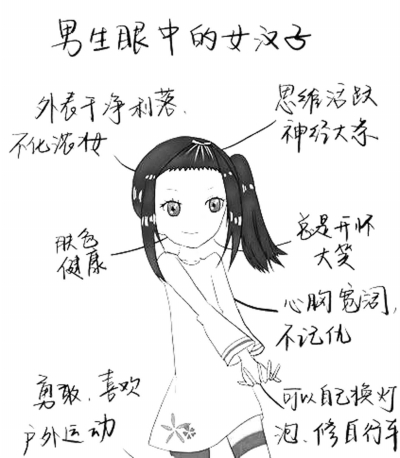 男生眼中的女汉子
外表干净利落、
不化浓妆
思维活跃
神经大条
肤色
健康
总是开怀
大笑
心胸宽阔,
不记仇
勇敢、喜欢
户外运动
可以自己换灯
泡、修自行车